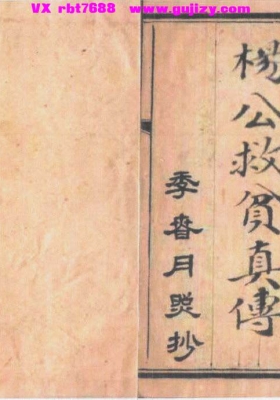 VX rbt7688 www.gujizy.com
楊公救貧真傳
季月抄